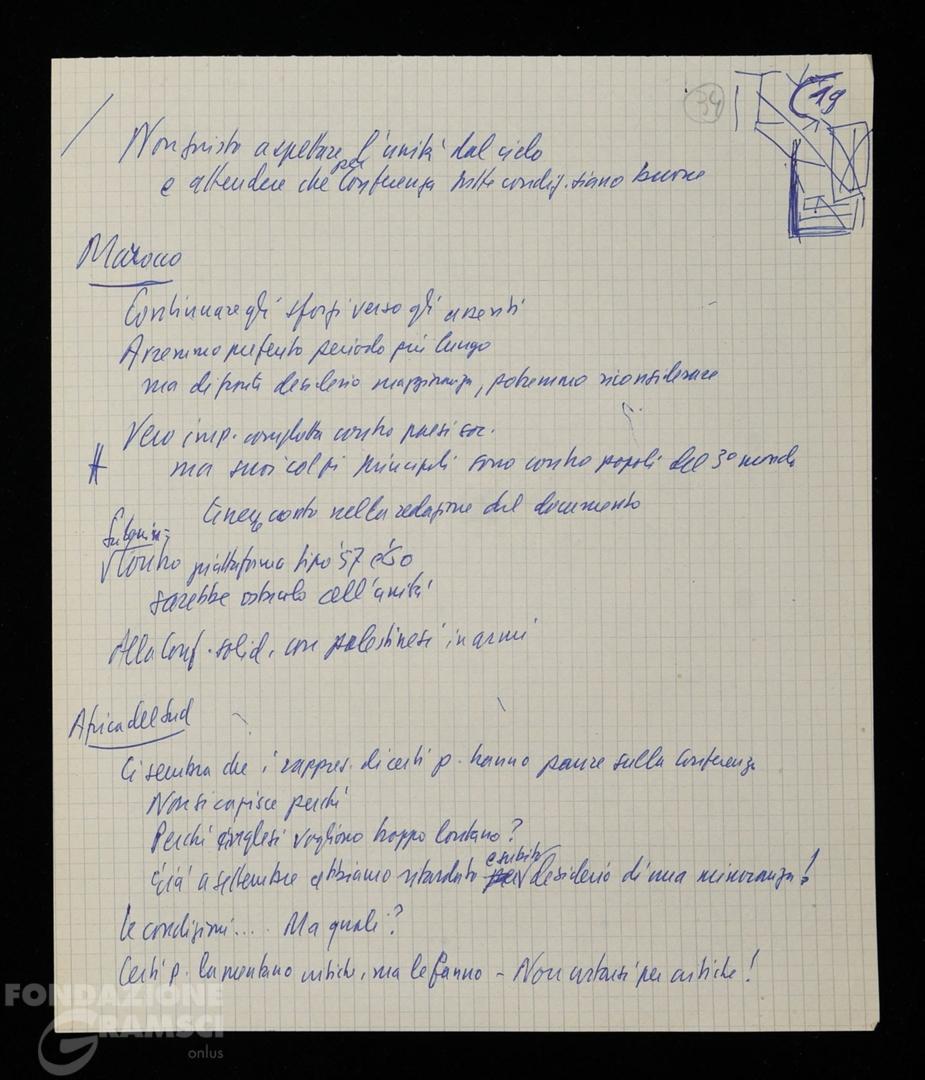 34
19
Non giusto aspettare l'unità dal cielo
e attendere che per Conferenza tutte condiz. siano buone
Marocco
Continuare gli sforzi verso gli assenti
Avremmo preferito periodo più lungo
ma di fronte desiderio maggioranza, potremmo riconsiderare
Vero imp. complotta contro paesi soc.
ma suoi colpi principali sono contro popoli del 3º mondo
tenere conto nella redazione del documento
Contro piattaforma tipo '57 e '60
sarebbe ostacolo all'unità
Alla Conf. solid. con palestinesi in armi
Africa del Sud
Ci sembra che i rappres. di certi p. hanno paure sulla Conferenza
Non si capisce perché
Perché inglesi vogliono troppo lontano?
e subito
Già a settembre abbiamo ritardato per desiderio di una minoranza!
le condizioni.... Ma quali?
Certi p. lamentano critiche, ma le fanno - Non urtarsi per critiche!
FONDAZIONE
GRAMSCI
onlus